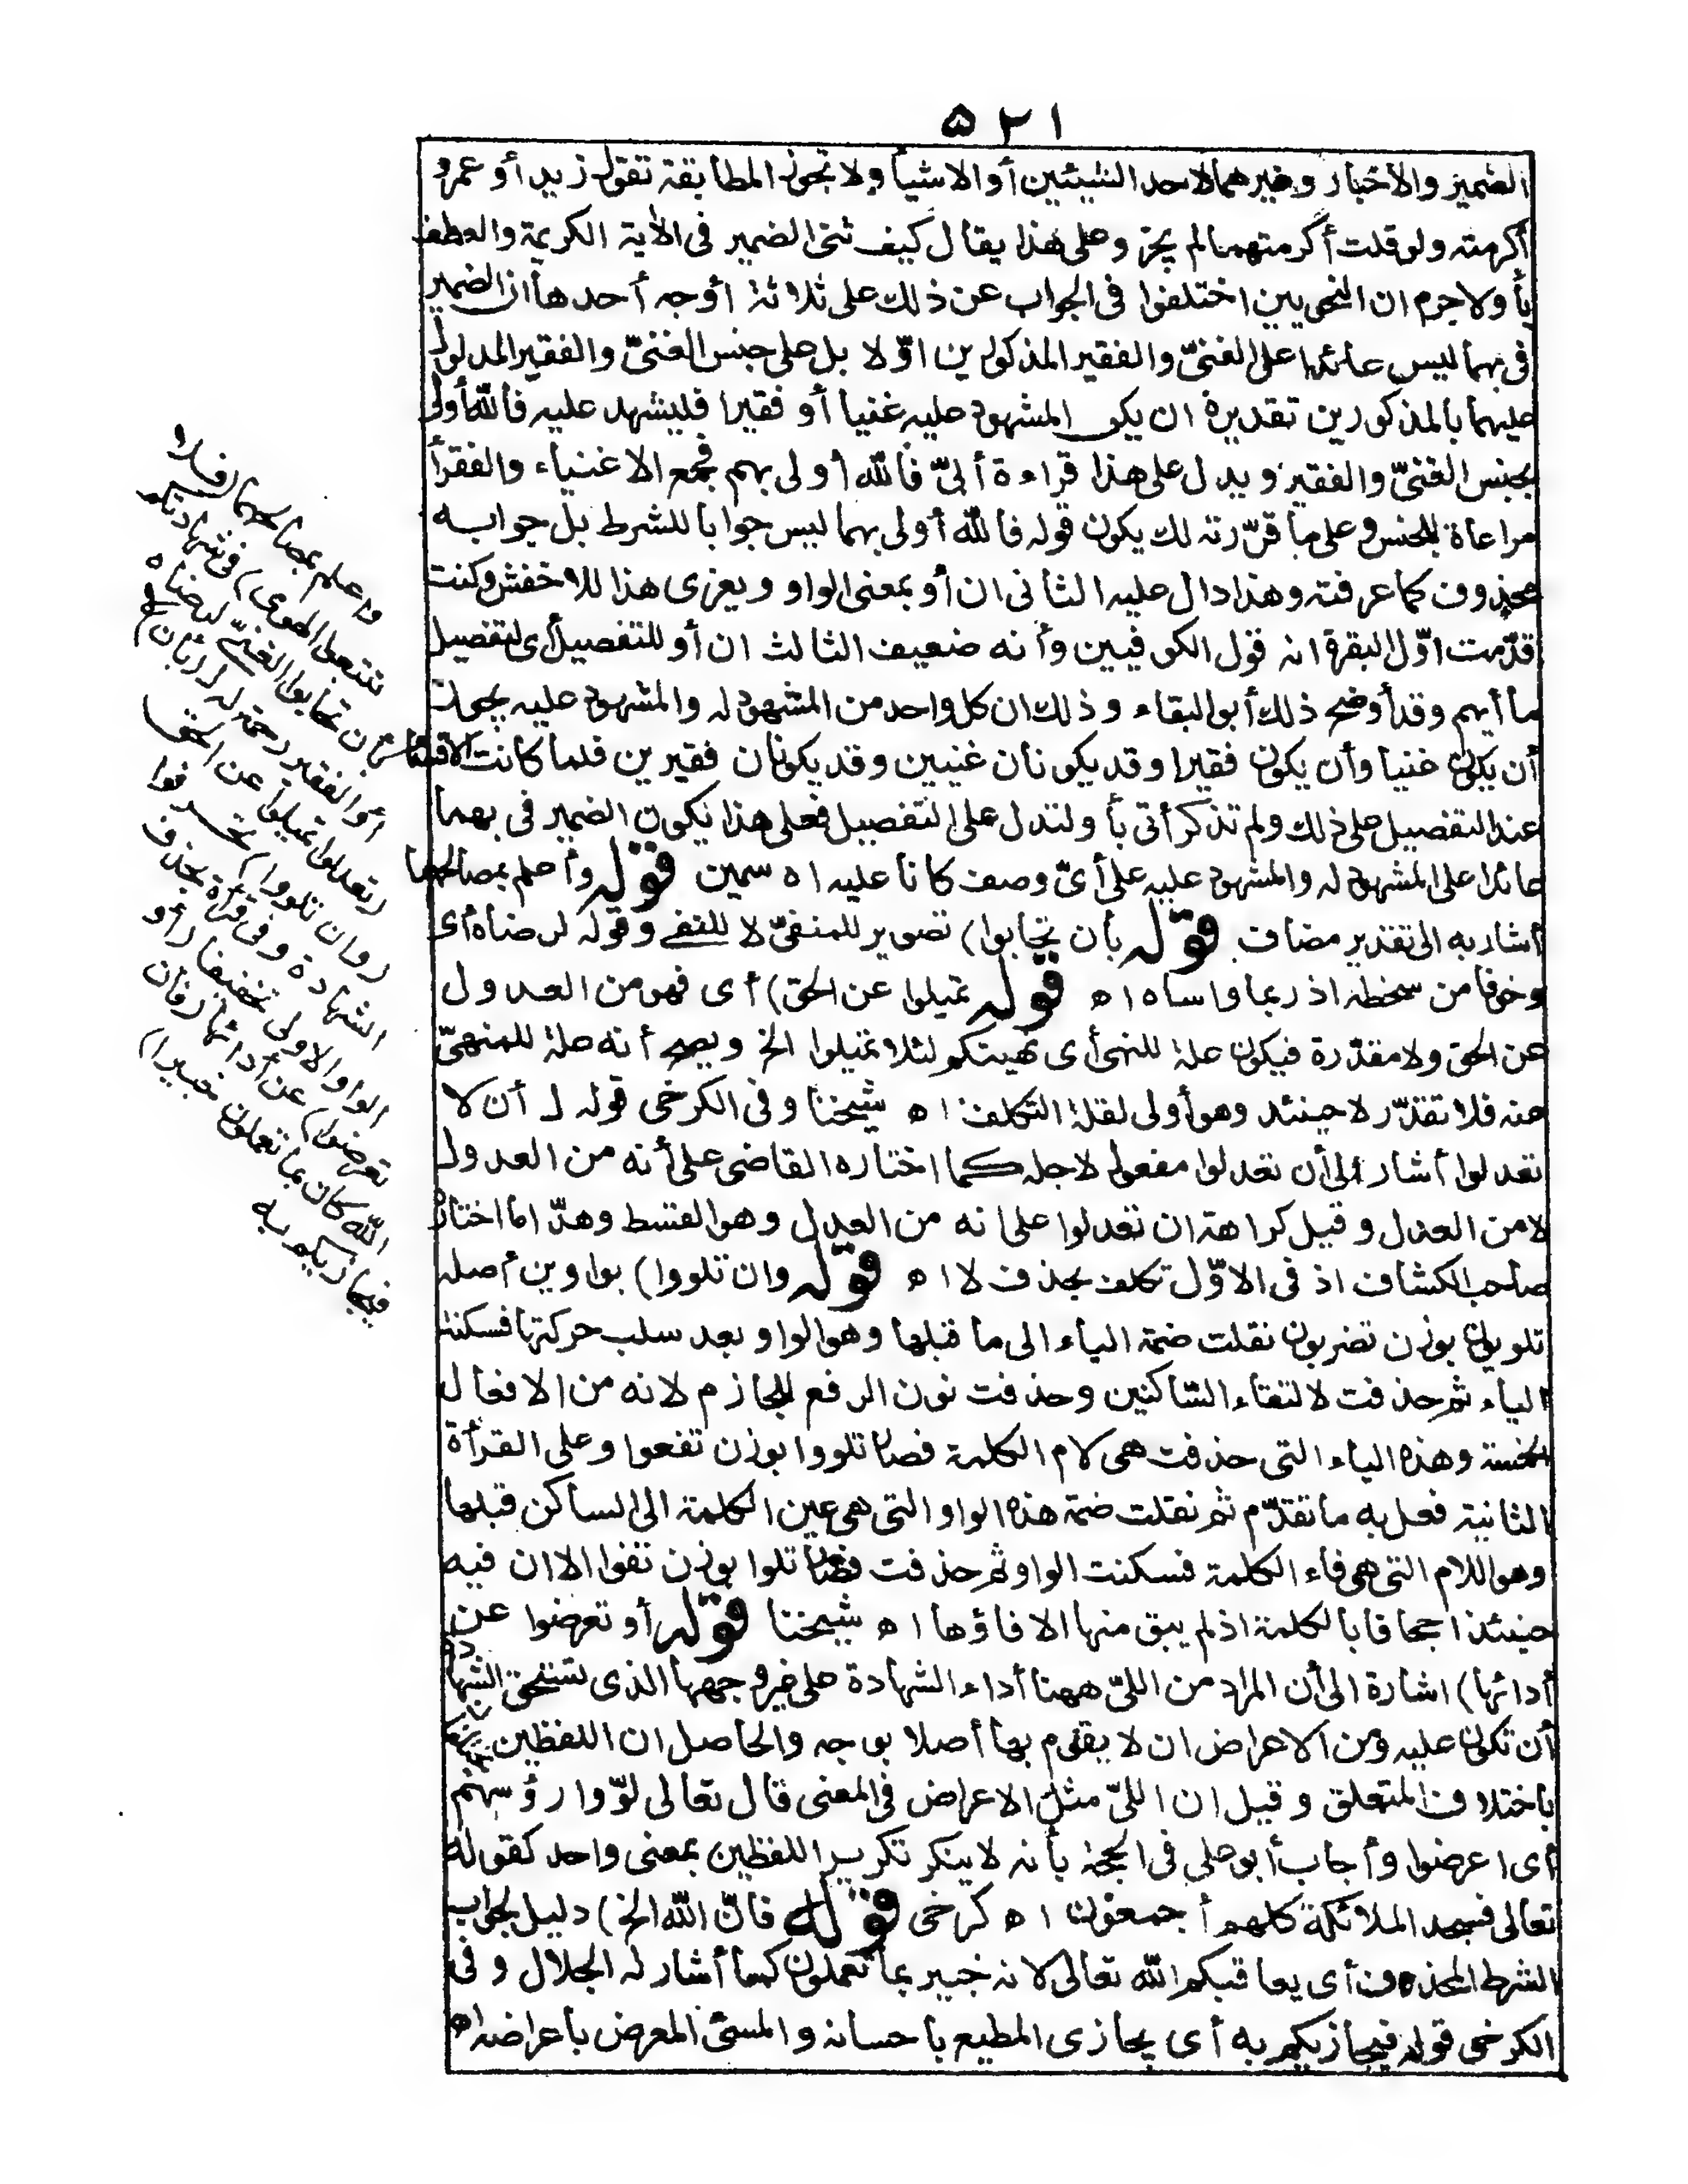 ٥٢١
الضمير والاخبار وغيرهما لاحد الشيئين أو الاشياء ولا تجوز المطابقة تقول زيد أو عمرو
أكرمته ولو قلت أكرمتهما لم يجز وعلى هذا يقال كيف ثنى الضمير فى الأية الكريمة والعطف
بأو ولاجرم ان النحويين اختلفوا فى الجواب عن ذلك على ثلاثة أوجه أحدها ان الضمير
فى بهما ليس عائدا على الغنىّ والفقير المذكورين اوّلا بل على جنس الغنىّ والفقير المدلول
عليهما بالمذكورين تقديره ان يكن المشهود عليه غنيا أو فقيرا فليشهد عليه فالله أولى
بجنس الغنىّ والفقير ويدل على هذا قراءة أبىّ فالله أولى بهم فجمع الاغنياء والفقرأ
مراعاة للجنس وعلى ما قرّرته لك يكون قوله فالله أولى بهما ليس جوابا للشرط بل جوابه
محذوف كما عرفته وهذا دال عليه الثانى ان أو بمعنى الواو ويعزى هذا للاخفش وكنت
قدّمت اوّل البقرة انه قول الكوفيين وأنه ضعيف الثالث ان أو للتفصيل أى لتفصيل
ما أبهم وقد أوضح ذلك أبو البقاء وذلك ان كل واحد من المشهود له والمشهود عليه يجوز
أن يكون غنيا وأن يكون فقيرا وقد يكونان غنيين وقد يكونان فقيرين فلما كانت الاقسام
عند التفصيل على ذلك ولم تذكر أتى بأو لتدل على التفصيل فعلى هذا يكون الضمير فى بهما
عائدا على المشهود له والمشهود عليه على أىّ وصف كانا عليه اه سمين قوله وأعلم بمصالحهما
أشار به الى تقدير مضاف قوله بأن تحابوا) تصوير للمنفىّ لا للنفى وقوله لرضاه أى
وخوفا من سخطه اذ ربما واساه اه قوله تميلوا عن الحق) أى فهو من العدول
عن الحق ولا مقدّرة فيكون علة للنهى أى نهيتكم لئلا تميلوا الخ ويصح أنه علة للمنهىّ
عنه فلا تقدّر لا حينئد وهو أولى لقلة التكلف اه شيخنا وفى الكرخى قوله ل أن لا
تعدلوا أشار الى أن تعدلوا مفعول لاجله كما اختاره القاضى على أنه من العدول
لا من العدل وقيل كراهة ان تعدلوا على انه من العدل وهو القسط وهذا ما اختاره
صاحب الكشاف اذ فى الاوّل تكلف بحذف لا اه قوله وان تلووا) بواوين أصله
تلويون بوزن تضربون نقلت ضمة الياء الى ما قبلها وهو الواو بعد سلب حركتها فسكنت
الياء ثم حذفت لالتقاء السّاكنين وحذفت نون الرفع للجازم لانه من الافعال
الخمسة وهذه الياء التى حذفت هى لام الكلمة فصار تلووا بوزن تفعوا وعلى القرأة
الثانية فعل به ما تقدّم ثم نقلت ضمة هذه الواو التى هى عين الكلمة الى الساكن قبلها
وهو اللام التى هى فاء الكلمة فسكنت الواو ثم حذفت فصار تلوا بوزن تفوا الا ان فيه
حينئذ اجحافا بالكلمة اذ لم يبق منها الا فاؤها اه شيخنا قوله أو تعرضوا عن
أدائها) اشارة الى أن المراد من اللىّ ههنا أداء الشهادة على غير وجهها الذى تستحق الشهادة
أن تكون عليه ومن الاعراض ان لا يقوم بها أصلا بوجه والحاصل ان اللفظين
باختلاف المتعلق وقيل ان اللىّ مثل الاعراض فى المعنى قال تعالى لوّوا رؤسهم
أى اعرضوا وأجاب أبو على فى الحجة بأنه لا ينكر تكرير اللفظين بمعنى واحد كقوله
تعالى فسجد الملائكة كلهم أجمعون اه كرخى قوله فانّ الله الخ) دليل لجواب
الشرط المحذوف أى يعاقبكم الله تعالى لانه خبير بما تعملون كما أشار له الجلال وفى
الكرخى قوله فيجازيكم به أى يجازى المطيع باحسانه والمسئ المعرض باعراضه اه
واعلم بمصالحهما (فلا
تتبعوا الهوى) فى شهادتكم
بأن تحابوا الغنىّ لرضاه
أو الفقير رحمة له (أن) لا
(تعدلوا) تميلوا عن الحق
(وان تلووا) تحرفوا
الشهادة وفى قرأة بحذف
الواو الاولى تخفيفا (أو
تعرضوا) عن أدائها (فان
الله كان بما تعملون خبيرا)
فيجازيكم به